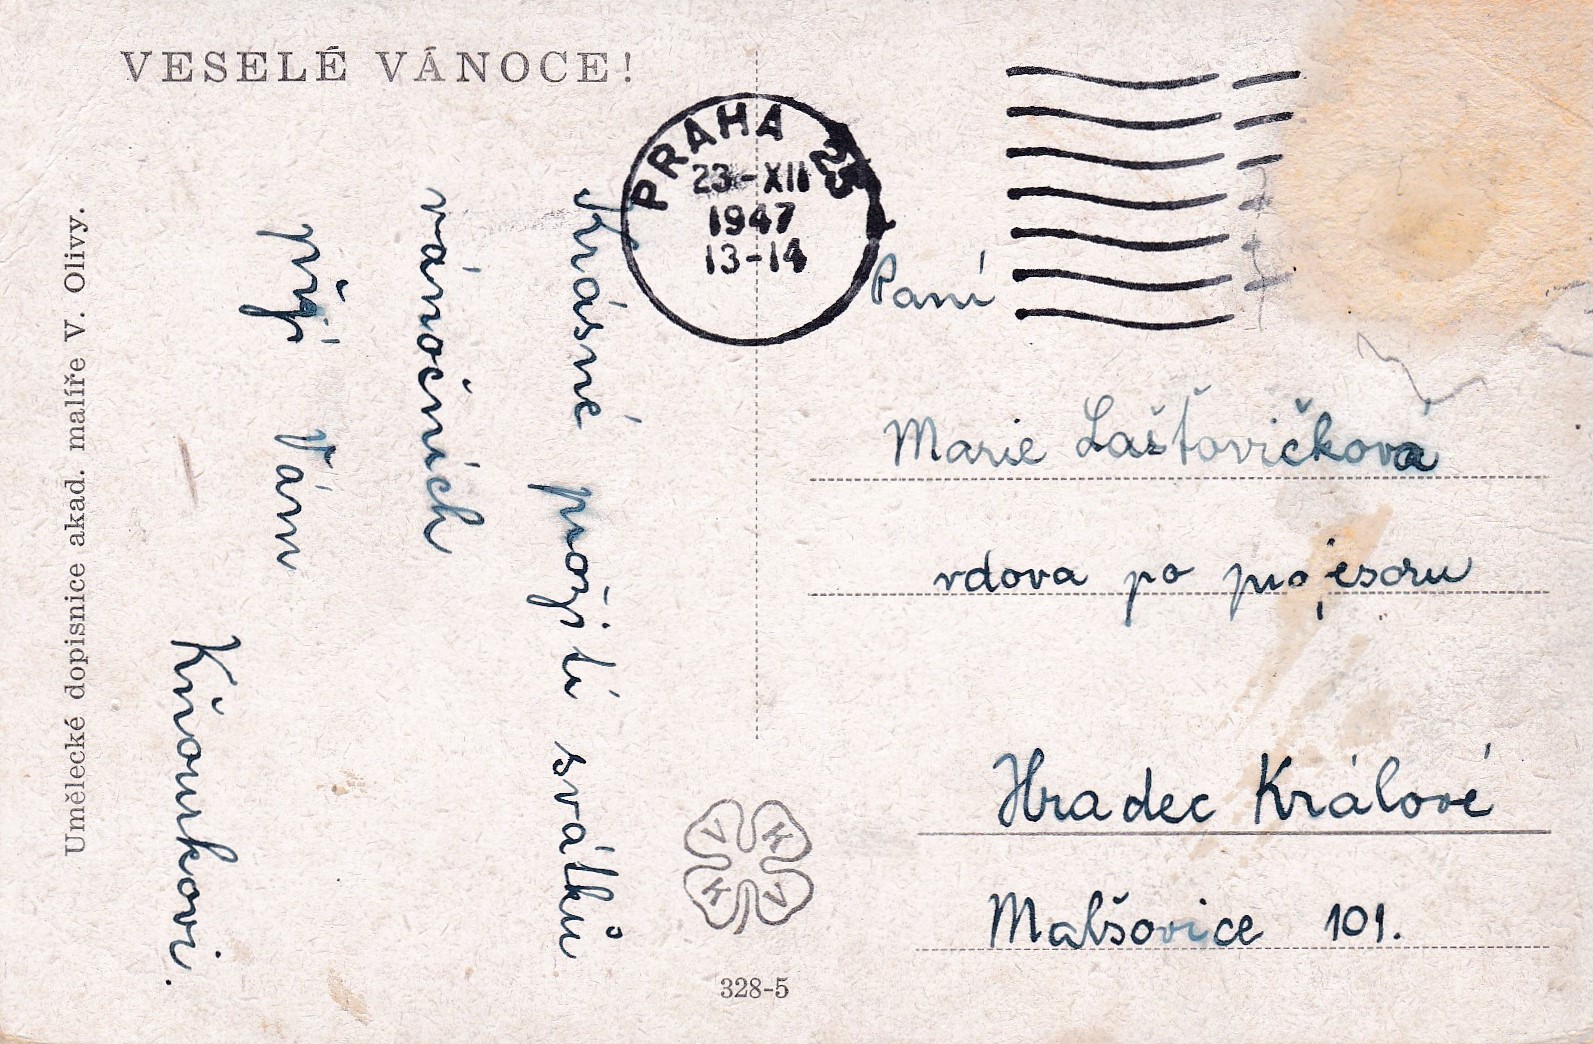 VESELÉ VÁNOCE!
PRAHA 25
23-XII
1947
13-14
Krásné prožití svátků
vánočních
přejí Vám
Kňourkovi.
Umělecké dopisnice akad. malíře V. Olivy.
Paní
Marie Lašťovičková
vdova po profesoru
Hradec Králové
Malšovice 101.
V K
K V
328-5